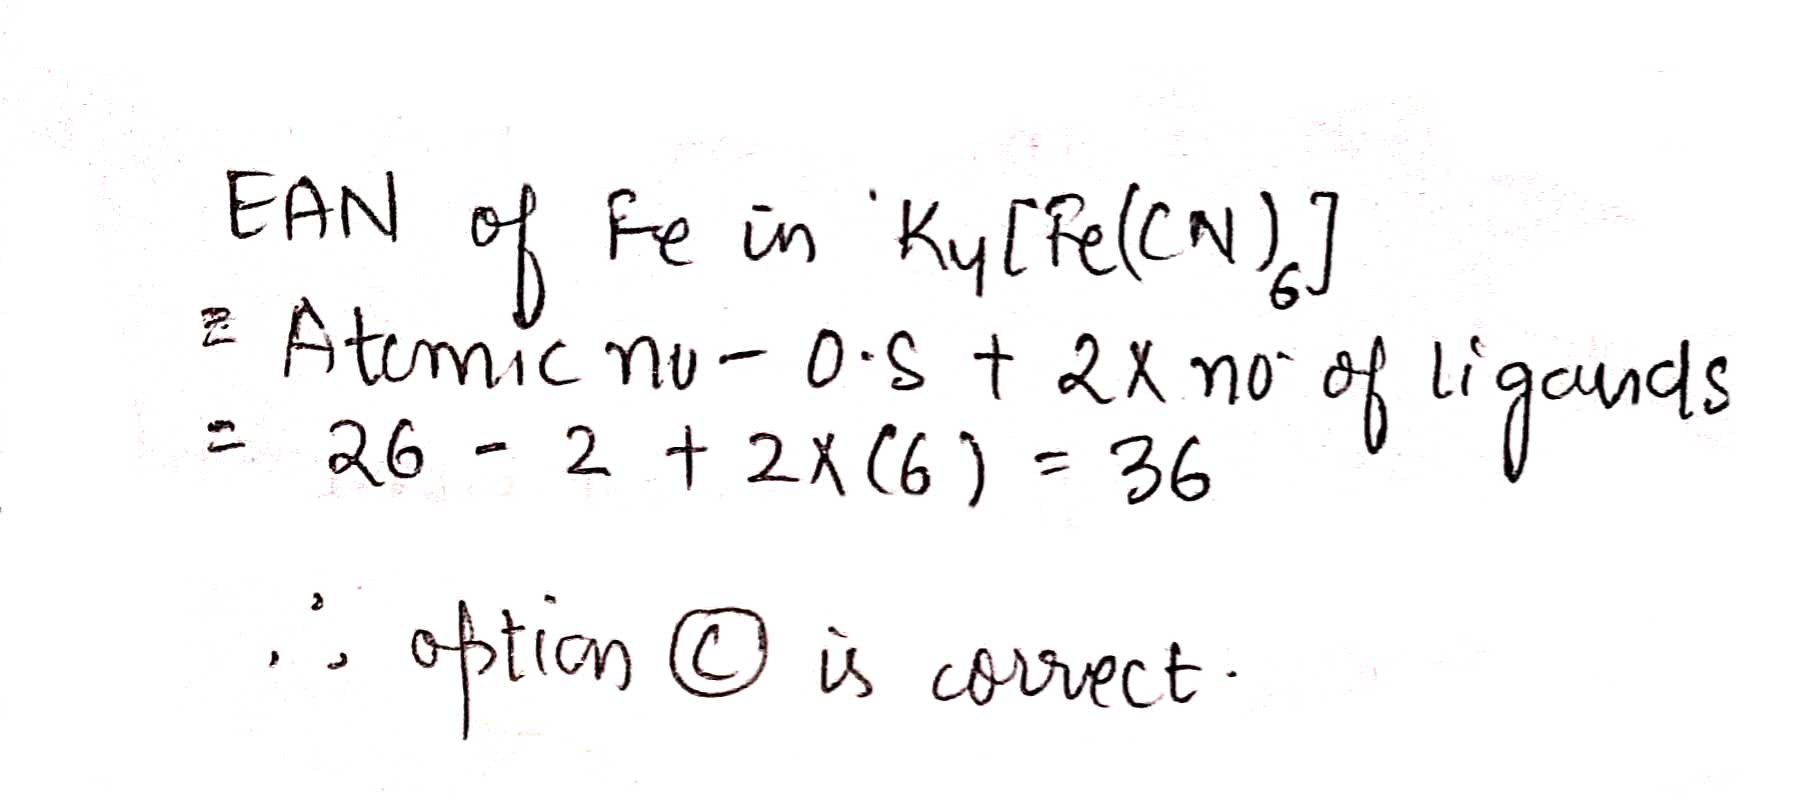 EAN of Fe in K4[Fe(CN)6]
= Atomic no - O.S + 2x no of ligands
= 26 - 2 + 2x(6) = 36
∴ option (C) is correct.